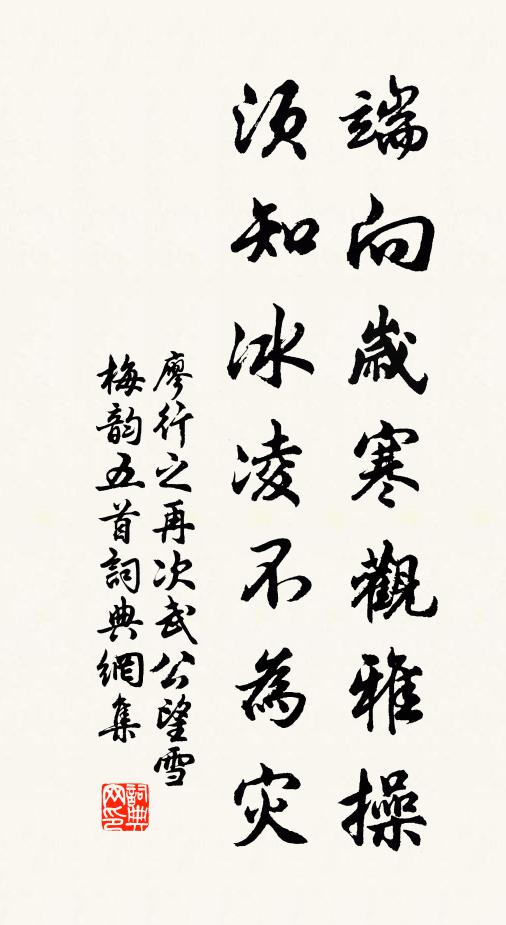 端向歲寒觀雅操
須知冰凌不為灾
廖行之再次武公望雪
梅韵五首詞典網集
詞典网印